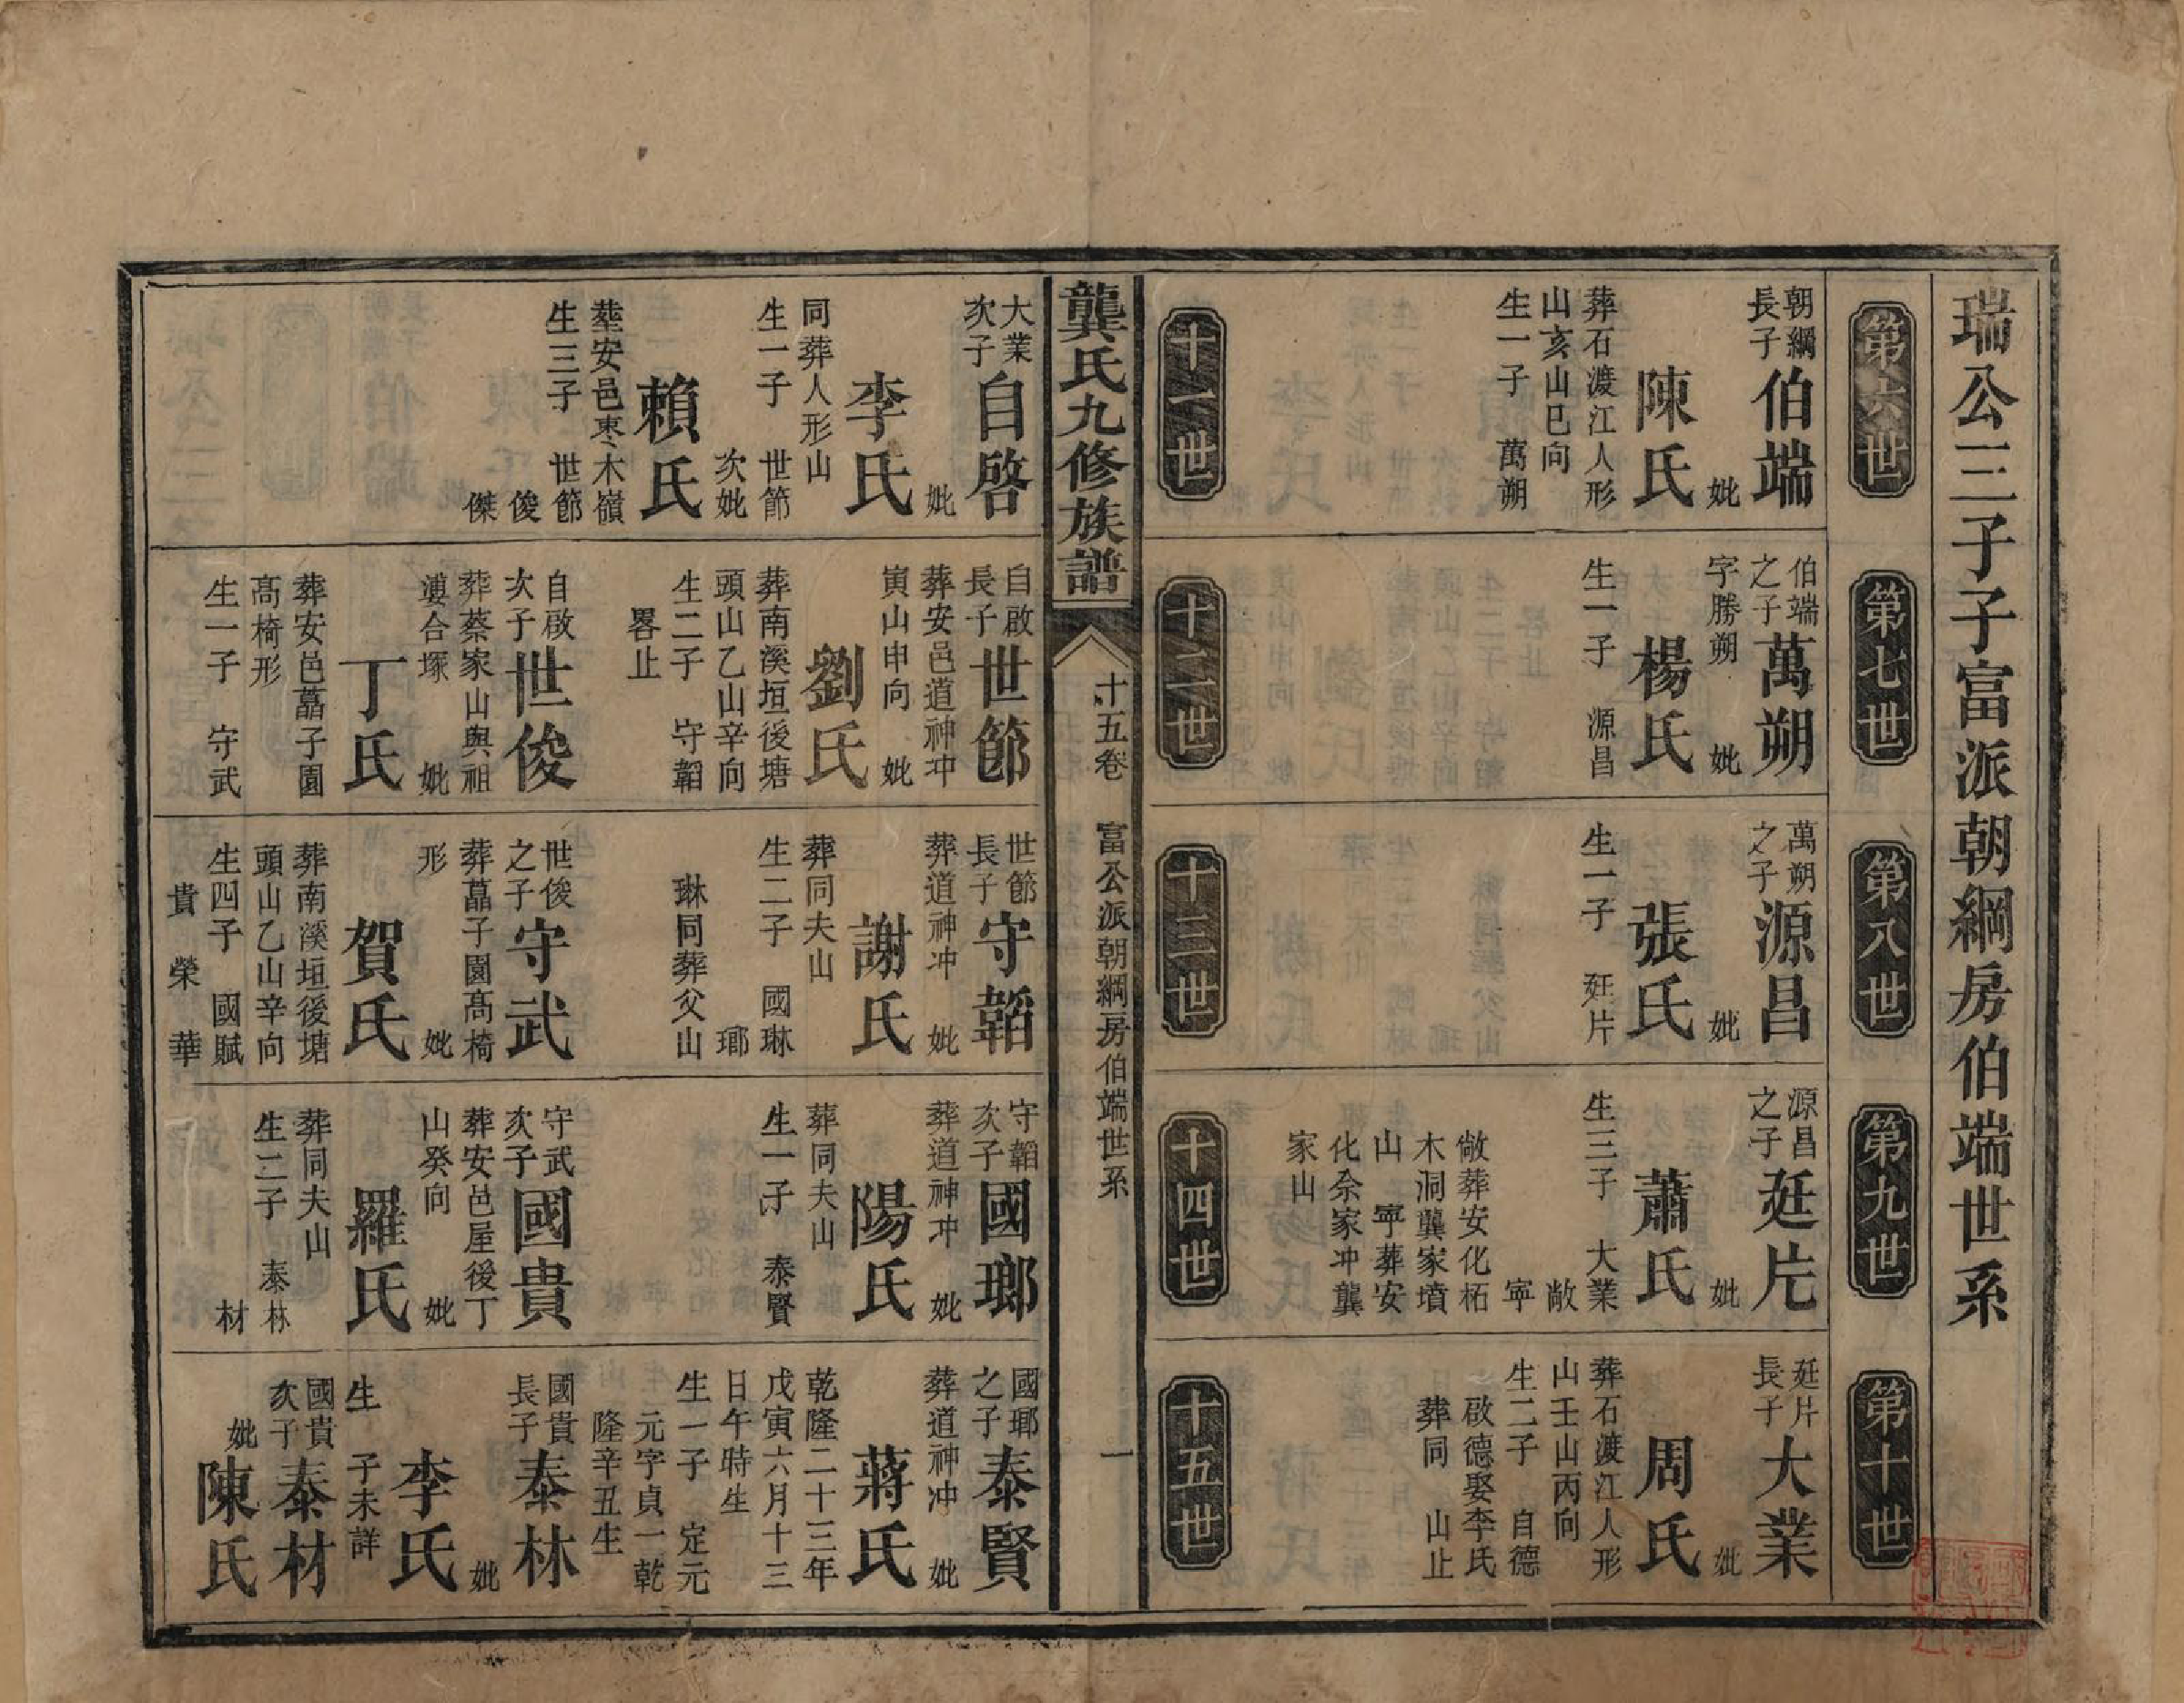 瑞公三子子富派朝綱房伯端世系
第六世
朝綱
長子
伯端
妣
陳氏
葬石渡江人形
山亥山巳向
生一子 萬朔
第七世
伯端
之子
萬朔
字勝朔 妣
楊氏
生一子 源昌
第八世
萬朔
之子
源昌
妣
張氏
生一子 廷片
第九世
源昌
之子
廷片
妣
蕭氏
生三子 大業
敞
寧
敞葬安化柘
木洞龔家墳
山 寧葬安
化余家冲龔
家山
第十世
廷片
長子
大業
妣
周氏
葬石渡江人形
山壬山丙向
生二子 自德
啟德娶李氏
葬同 山止
十一世
十二世
十三世
十四世
十五世
龔氏九修族譜
十五卷 富公派朝綱房伯端世系 一
大業
次子
自啓
妣
李氏
同葬人形山
生一子 世節
次妣
賴氏
塟安邑棗木嶺
生三子 世節
俊
傑
自啟
長子
世節
葬安邑道神冲
寅山申向 妣
劉氏
葬南溪垣後塘
頭山乙山辛向
生二子 守韜
畧止
自啟
次子
世俊
葬蔡家山與祖
塿合塚 妣
丁氏
葬安邑藠子園
高椅形
生一子 守武
世節
長子
守韜
葬道神冲 妣
謝氏
葬同夫山
生二子 國琳
瑯
琳同葬父山
世俊
之子
守武
葬藠子園高椅
形 妣
賀氏
葬南溪垣後塘
頭山乙山辛向
生四子 國賦
貴 榮 華
守韜
次子
國瑯
葬道神冲 妣
陽氏
葬同夫山
生一子 泰賢
守武
次子
國貴
葬安邑屋後丁
山癸向 妣
羅氏
葬同夫山
生二子 泰林
材
國瑯
之子
泰賢
葬道神冲 妣
蔣氏
乾隆二十三年
戊寅六月十三
日午時生
生一子 定元
元字貞一乾
隆辛丑生
國貴
長子
泰林
妣
李氏
生 子未詳
國貴
次子
泰材
妣
陳氏